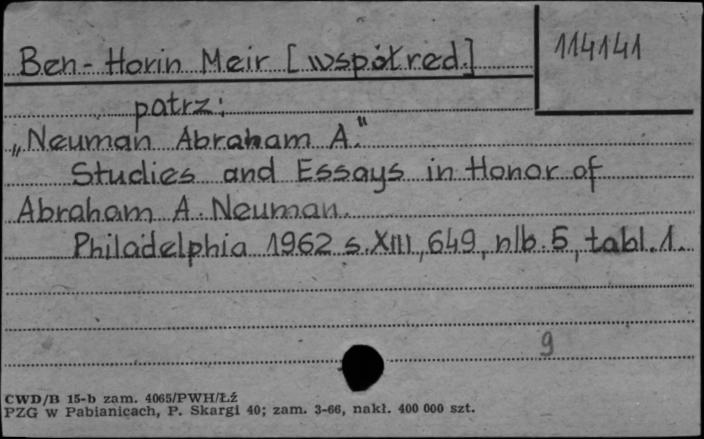 Ben-Horin Meir [współred.]
114141
patrz:
„Neuman Abraham A."
Studies and Essays in Honor of
Abraham A. Neuman.
Philadelphia 1962 s. XIII, 649, nlb. 5, tabl. 1.
9
CWD/B 15-b zam. 4065/PWH/Łź
PZG w Pabianicach, P. Skargi 40; zam. 3-66, nakł. 400 000 szt.